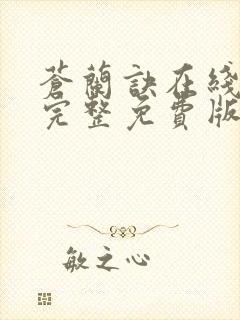 蒼蘭訣在綫
完整免費版
敏之心